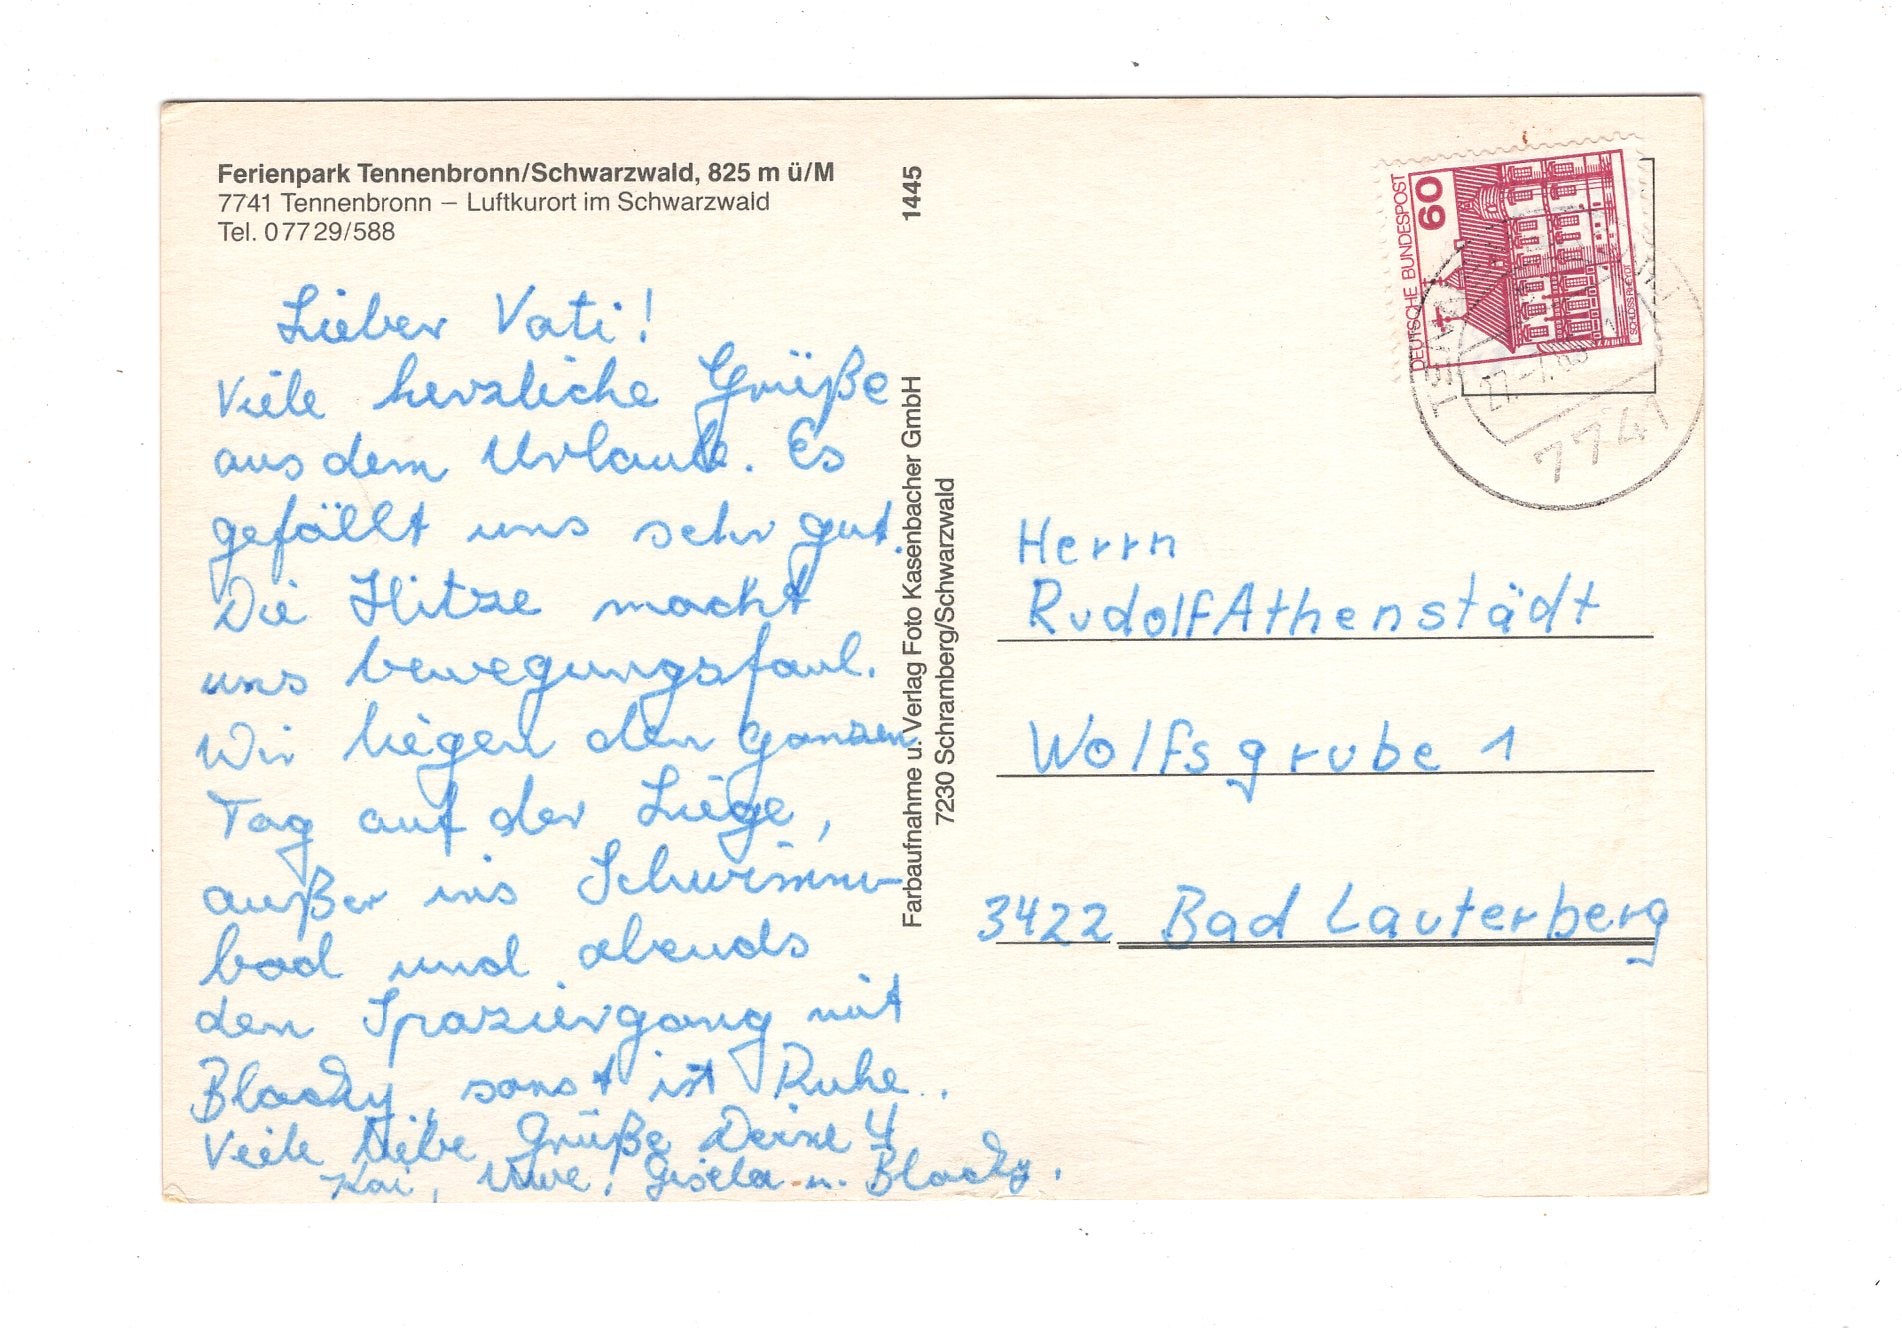 Ferienpark Tennenbronn/Schwarzwald, 825 m ü/M
7741 Tennenbronn – Luftkurort im Schwarzwald
Tel. 0 77 29/588
Lieber Vati!
Viele herzliche Grüße
aus dem Urlaub. Es
gefällt uns sehr gut.
Die Hitze macht
uns bewegungsfaul.
Wir liegen den ganzen
Tag auf der Liege,
außer ins Schwimm-
bad und abends
den Spaziergang mit
Blacky, sonst ist Ruhe.
Viele liebe Grüße Deine 4
Kai, Uwe, Gisela u. Blacky.
1445
Farbaufnahme u. Verlag Foto Kasenbacher GmbH
7230 Schramberg/Schwarzwald
DEUTSCHE BUNDESPOST
60
SCHLOSS RHEYDT
27.-7.83
7741
Herrn
Rudolf Athenstädt
Wolfsgrube 1
3422 Bad Lauterberg